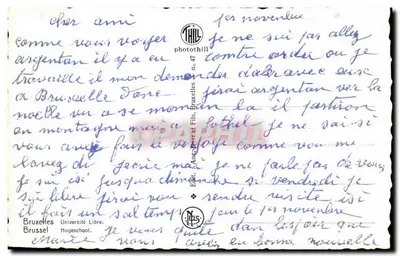 cher ami 1er novembre
comme vous voyer je ne sui pas allez
argentan il y a eu contre ordre ou je
travaille il mon demander daler avec eux
a Bruxelle Donc jirai argentan ver la
noëlle vu a se moman la il partiron
en montagne mais a lothel je ne sai si
vous avez fait le voyage comme vou me
lavez di jecrie mai je ne parle pas de vous
je sui ici jusqua dimanche si vendredi je
sui libre jirai vou rendre visite ici
il fait un sal temps pour le 1er novembre
je vous quite dan lespoir que
vous avez en bonne nouvelle
THILL
photothill
Edit. et Fils, Bruxelles No. 47
NELS
Bruxelles Université Libre.
Brussel Hogeschool.